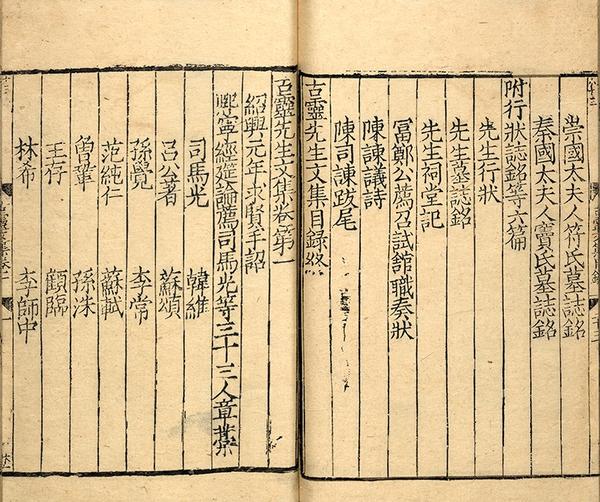 崇國太夫人符氏墓誌銘
秦國太夫人竇氏墓誌銘
附行狀誌銘等六篇
先生行狀
先生墓誌銘
先生祠堂記
冨鄭公薦召試館職奏狀
陳諫議詩
陳司諫跋尾
古靈先生文集目録終
古靈先生文集卷第一
紹興元年求賢手詔
熙寧經筵論薦司馬光等三十三人章藁
司馬光 韓維
呂公著 蘇頌
孫覺 李常
范純仁 蘇軾
曾鞏 孫洙
王存 顧臨
林希 李師中